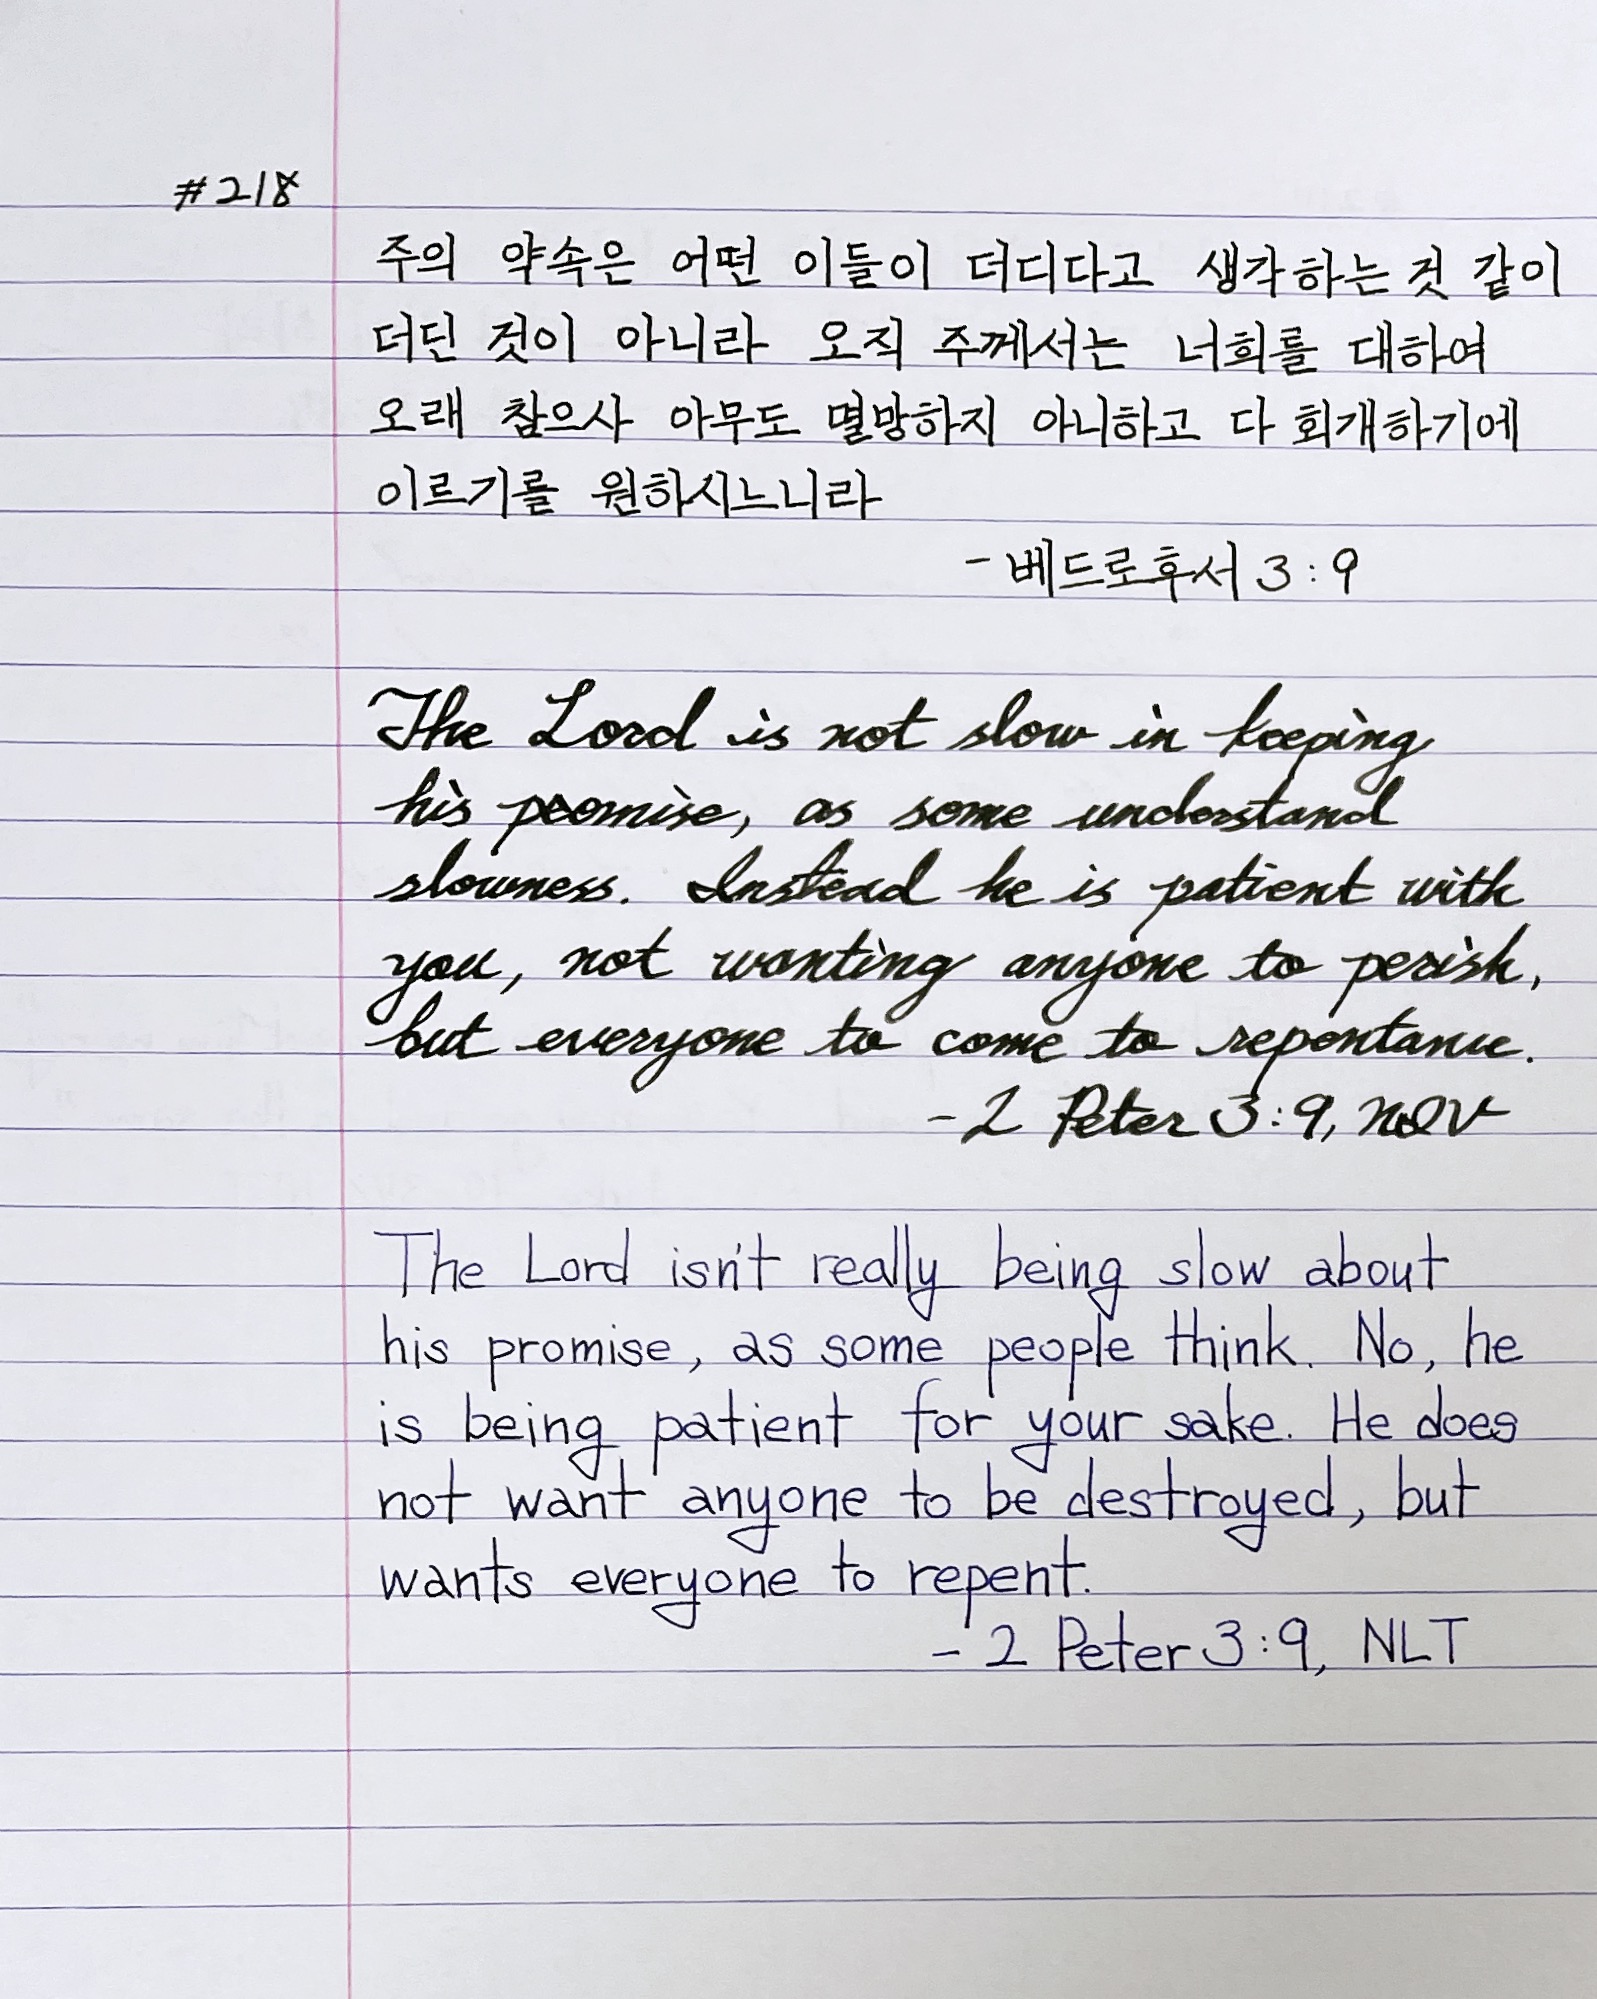 #218
주의 약속은 어떤 이들이 더디다고 생각하는 것 같이
더딘 것이 아니라 오직 주께서는 너희를 대하여
오래 참으사 아무도 멸망하지 아니하고 다 회개하기에
이르기를 원하시느니라
- 베드로후서 3:9
The Lord is not slow in keeping
his promise, as some understand
slowness. Instead he is patient with
you, not wanting anyone to perish,
but everyone to come to repentance.
- 2 Peter 3:9, NIV
The Lord isn't really being slow about
his promise, as some people think. No, he
is being patient for your sake. He does
not want anyone to be destroyed, but
wants everyone to repent.
- 2 Peter 3:9, NLT